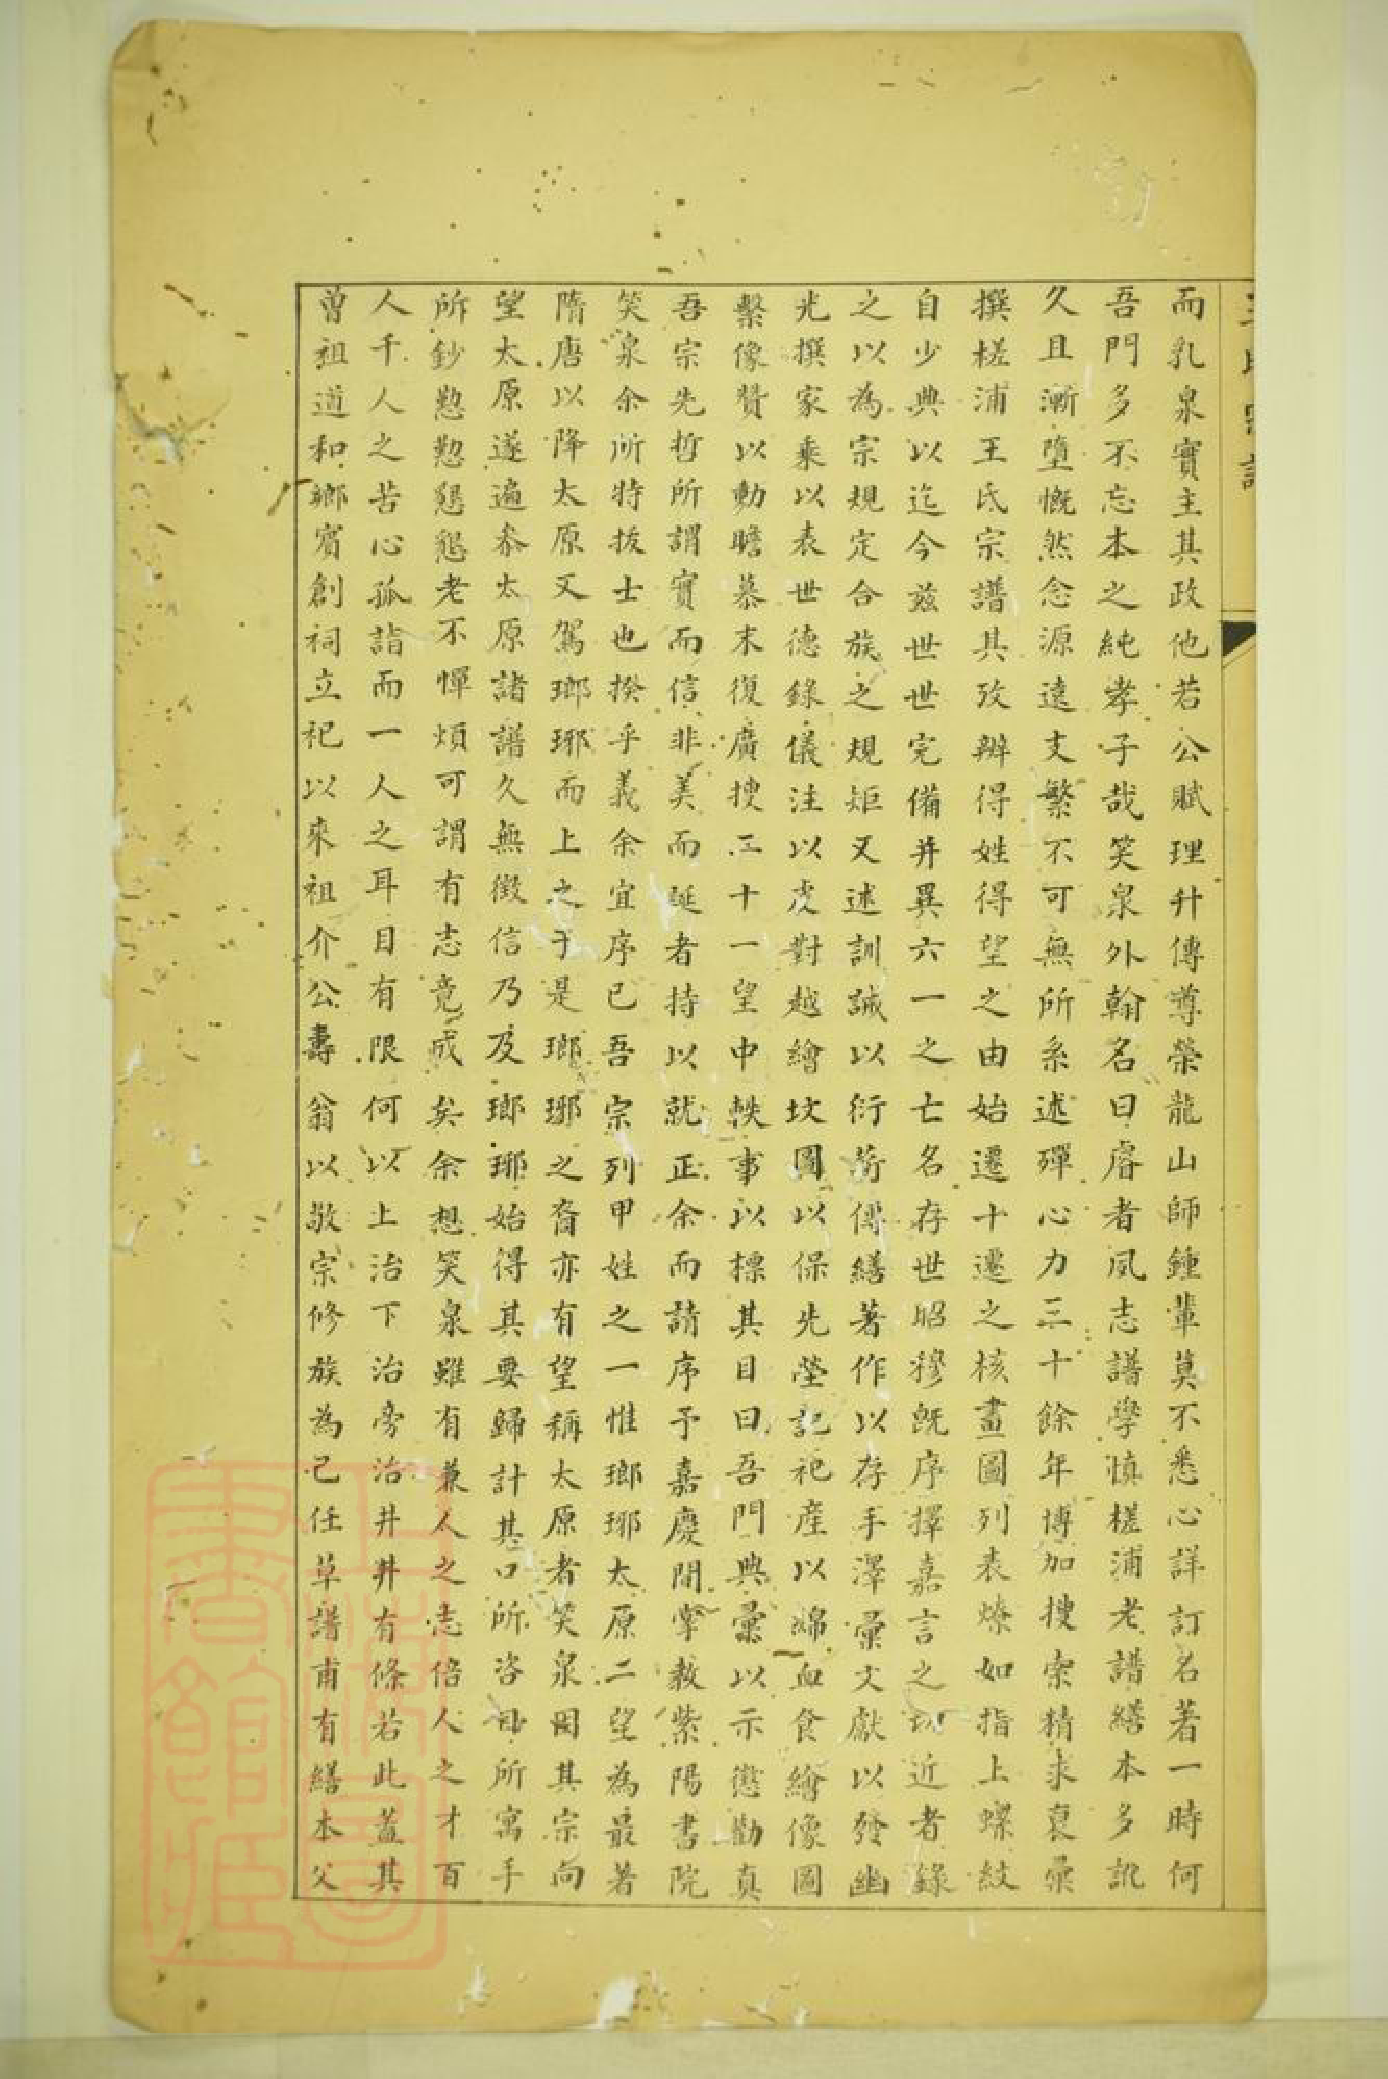 王氏宗譜
而乳泉實主其政他若公賦理升傳尊榮龍山師鍾輩莫不悉心詳訂名著一時何
吾門多不忘本之純孝子哉笑泉外翰名曰睿者夙志譜學慎槎浦老譜繕本多訛
久且漸墮慨然念源遠支繁不可無所系述殫心力三十餘年博加搜索精求裒彙
撰槎浦王氏宗譜其攷辨得姓得望之由始遷十遷之核畫圖列表燎如指上螺紋
自少典以迄今兹世世完備并異六一之亡名存世昭穆既序擇嘉言之切近者錄
之以為宗規定合族之規矩又述訓誡以衍荷傳繕著作以存手澤彙文獻以發幽
光撰家乘以表世德錄儀注以虔對越繪坟圖以保先塋記祀產以綿血食繪像圖
繫像贊以動瞻慕末復廣搜二十一望中軼事以標其目曰吾門典彙以示懲勸真
吾宗先哲所謂實而信非美而延者持以就正余而請序予嘉慶間掌教紫陽書院
笑泉余所特拔士也揆乎義余宜序已吾宗列甲姓之一惟瑯琊太原二望為最著
隋唐以降太原又駕瑯琊而上之于是瑯琊之裔亦有望稱太原者笑泉因其宗向
望太原遂遍叅太原諸譜久無徵信乃及瑯琊始得其要歸計其口所咨目所寓手
所鈔懃懃懇懇老不憚煩可謂有志竟成矣余想笑泉雖有兼人之志倍人之才百
人千人之苦心孤詣而一人之耳目有限何以上治下治旁治井井有條若此蓋其
曾祖道和鄉賓創祠立祀以來祖介公壽翁以敬宗修族為己任草譜甫有繕本父
上海圖書館藏